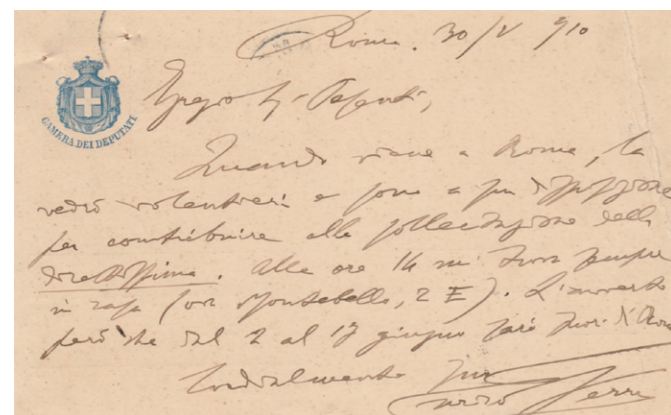 Roma. 30/V 910
CAMERA DEI DEPUTATI
Egregio Sig. Pesenti,
Quando viene a Roma, la
vedrò volentieri e sono a sua disposizione
per contribuire alla sollecitazione della
direttissima. Alle ore 14 mi trova sempre
in casa (via Montebello, 2 E). L'avverto
però che dal 2 al 17 giugno sarò fuori di Roma
Cordialmente suo
Enrico Ferri